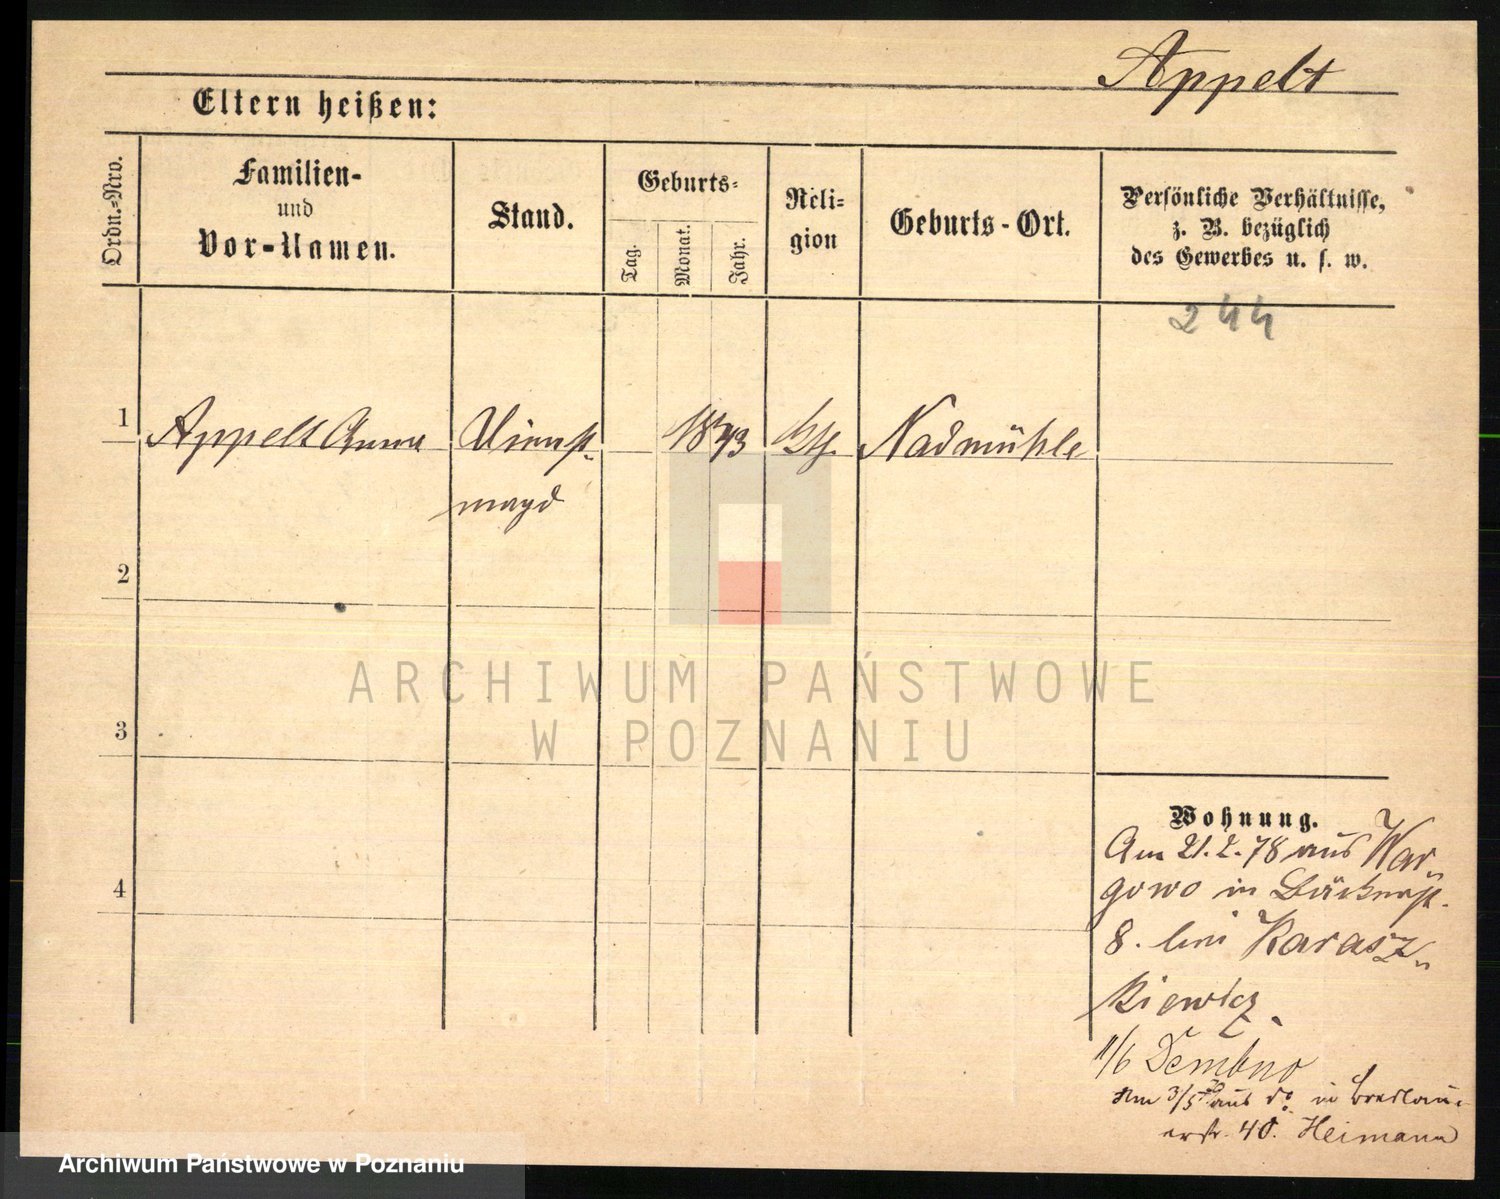 Appelt
Eltern heißen:
Ordn.-Nro.
Familien-
und
Vor-Namen.
Stand.
Geburts-
Tag.
Monat.
Jahr.
Reli-
gion
Geburts-Ort.
Persönliche Verhältnisse,
z. B. bezüglich
des Gewerbes u. s. w.
244
1
Appelt Anna
Dienst-
magd
1843
kth.
Nadmühle
2
3
4
ARCHIWUM PAŃSTWOWE
W POZNANIU
Wohnung.
Am 21.2.78 aus War-
gowo in Bäckerst.
8. bei Karasz-
kiewicz.
11/6 Dembno
Am 3/5 aus do. in Breslau-
erstr. 40. Heimann
Archiwum Państwowe w Poznaniu